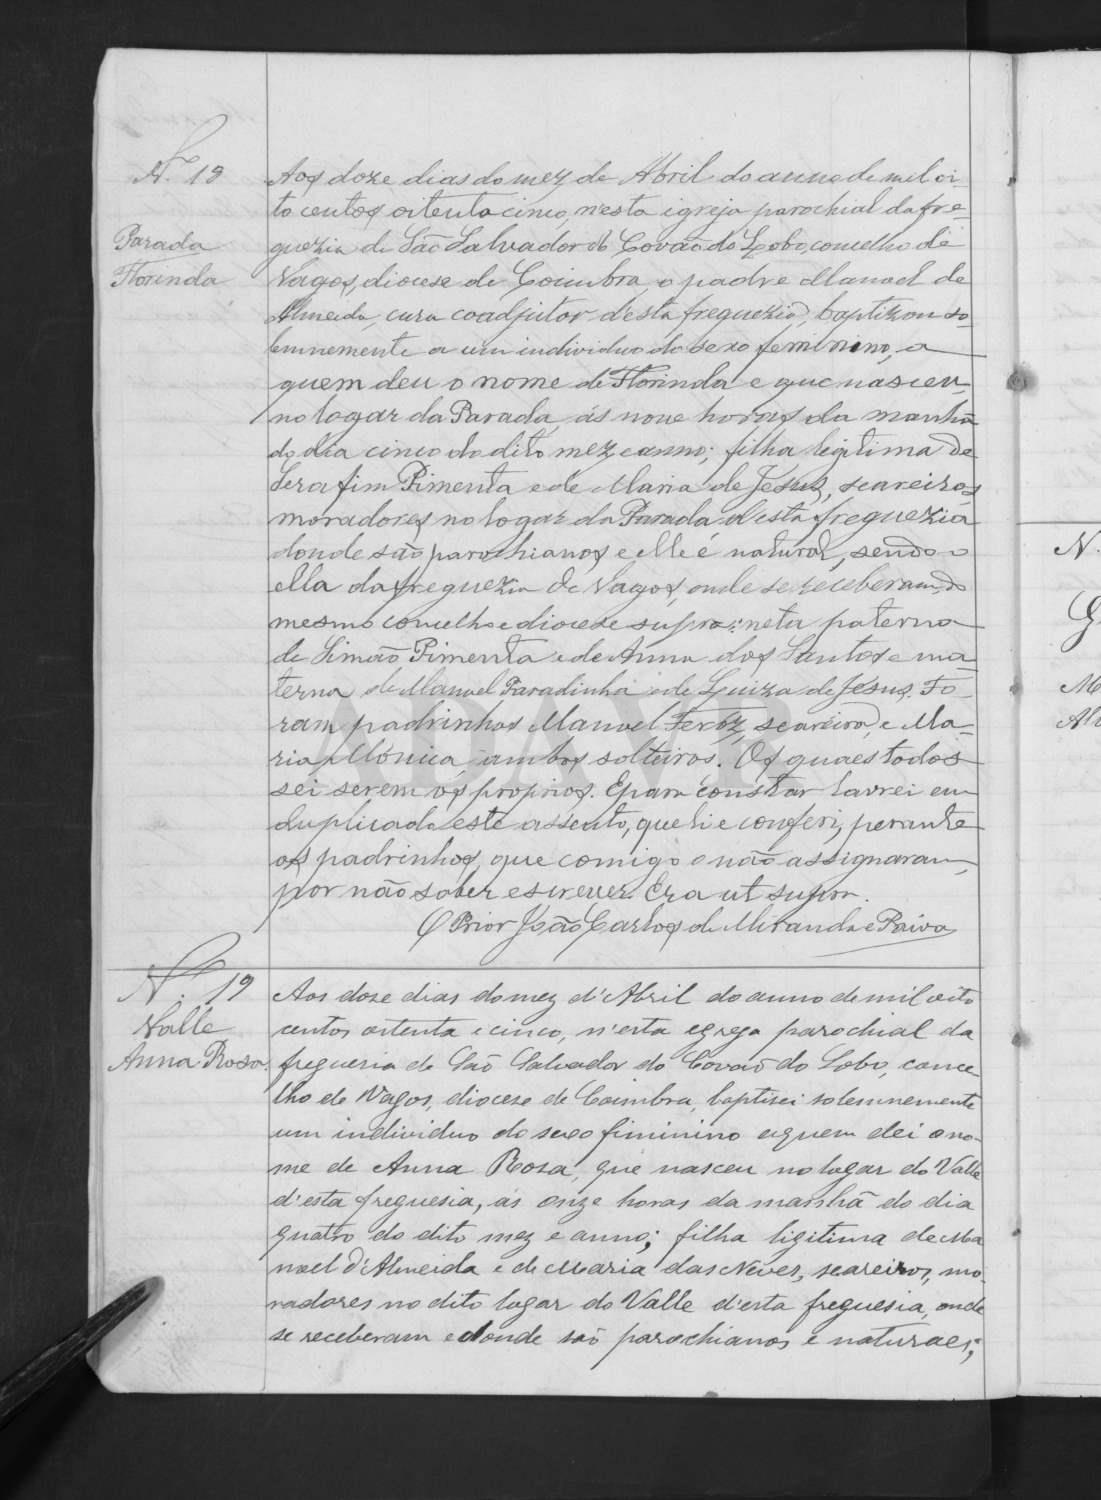 N.º 18
Parada
Florinda
Aos doze dias do mez de Abril do anno de mil oi-
to centos oitenta cinco, n'esta igreja parochial da fre-
guezia de São Salvador do Covão do Lobo, concelho de
Vagos, diocese de Coimbra, o padre Manoel de
Almeida, cura coadjutor desta freguezia, baptizou so-
lemnemente a um individuo do sexo feminino, a
quem deu o nome de Florinda e que nasceu,
no logar da Parada, ás nove horas da manhã
do dia cinco do dito mez e anno; filha legitima de
Serafim Pimenta e de Maria de Jesus, seareiros,
moradores no logar da Parada, d'esta freguezia
donde são parochianos e elle é natural, sendo o
ella da freguezia de Vagos, onde se receberam, do
mesmo concelho e diocese supra; neta paterna
de Simão Pimenta e de Anna dos Santos e ma-
terna de Manoel Paradinha e de Luiza de Jesus. Fo-
ram padrinhos Manoel Ferõz, seareiro, e Ma-
ria Mónica, ambos solteiros. Os quaes todos
sei serem os proprios. E para constar lavrei em
duplicado este assento, que li e conferi, perante
os padrinhos, que comigo o não assignaram,
por não saber escrever. Era ut supra.
O Prior João Carlos de Miranda e Paiva
N.º 19
Valle
Anna Rosa.
Aos dose dias do mez d'Abril do anno de mil oito
centos oitenta e cinco, n'esta egreja parochial da
freguesia de São Salvador do Covão do Lobo, conce-
lho de Vagos, diocese de Coimbra, baptisei solemnemente
um individuo do sexo fiminino a quem dei o no-
me de Anna Rosa, que nasceu no lugar do Valle
d'esta freguesia, ás onze horas da manhã do dia
quatro do dito mez e anno; filha ligitima de Ma
noel d'Almeida e de Maria das Neves, seareiros, mo-
radores no dito lugar do Valle d'esta freguesia, onde
se receberam e donde são parochianos e naturaes;
N.
G
M
Al
ADAVR